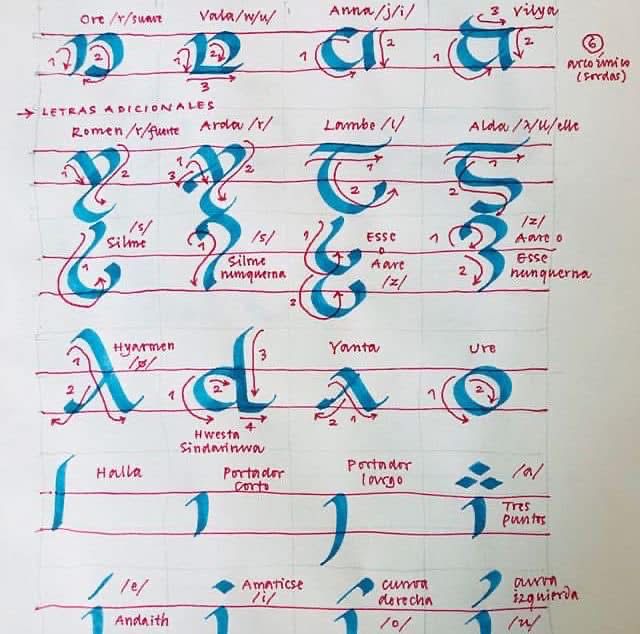 Ore /r/suave Vala/w/u/ Anna /j/i/ 3 Vilya
1 2 1 2 1 2 1 2
3
6
arco único
(sordas)
→ LETRAS ADICIONALES
Romen /r/fuerte Arda /r/ Lambe /l/ Alda /λ/ll/elle
1 2 1 2 3 1 2 1 2
/s/
Silme
1
1
/s/
Silme
nunquerna
1
2
Esse
o
Aare
/z/
1
2
/z/
Aare o
Esse
nunquerna
Hyarmen
/ø/
1
2
1 2 3
4
Hwesta
Sindarinwa
Yanta
2 1
Ure
1 2
Halla
Portador
corto
Portador
largo
/a/
Tres
puntos
/e/
Andaith
Amaticse
/i/
curva
derecha
/o/
curva
izquierda
/u/